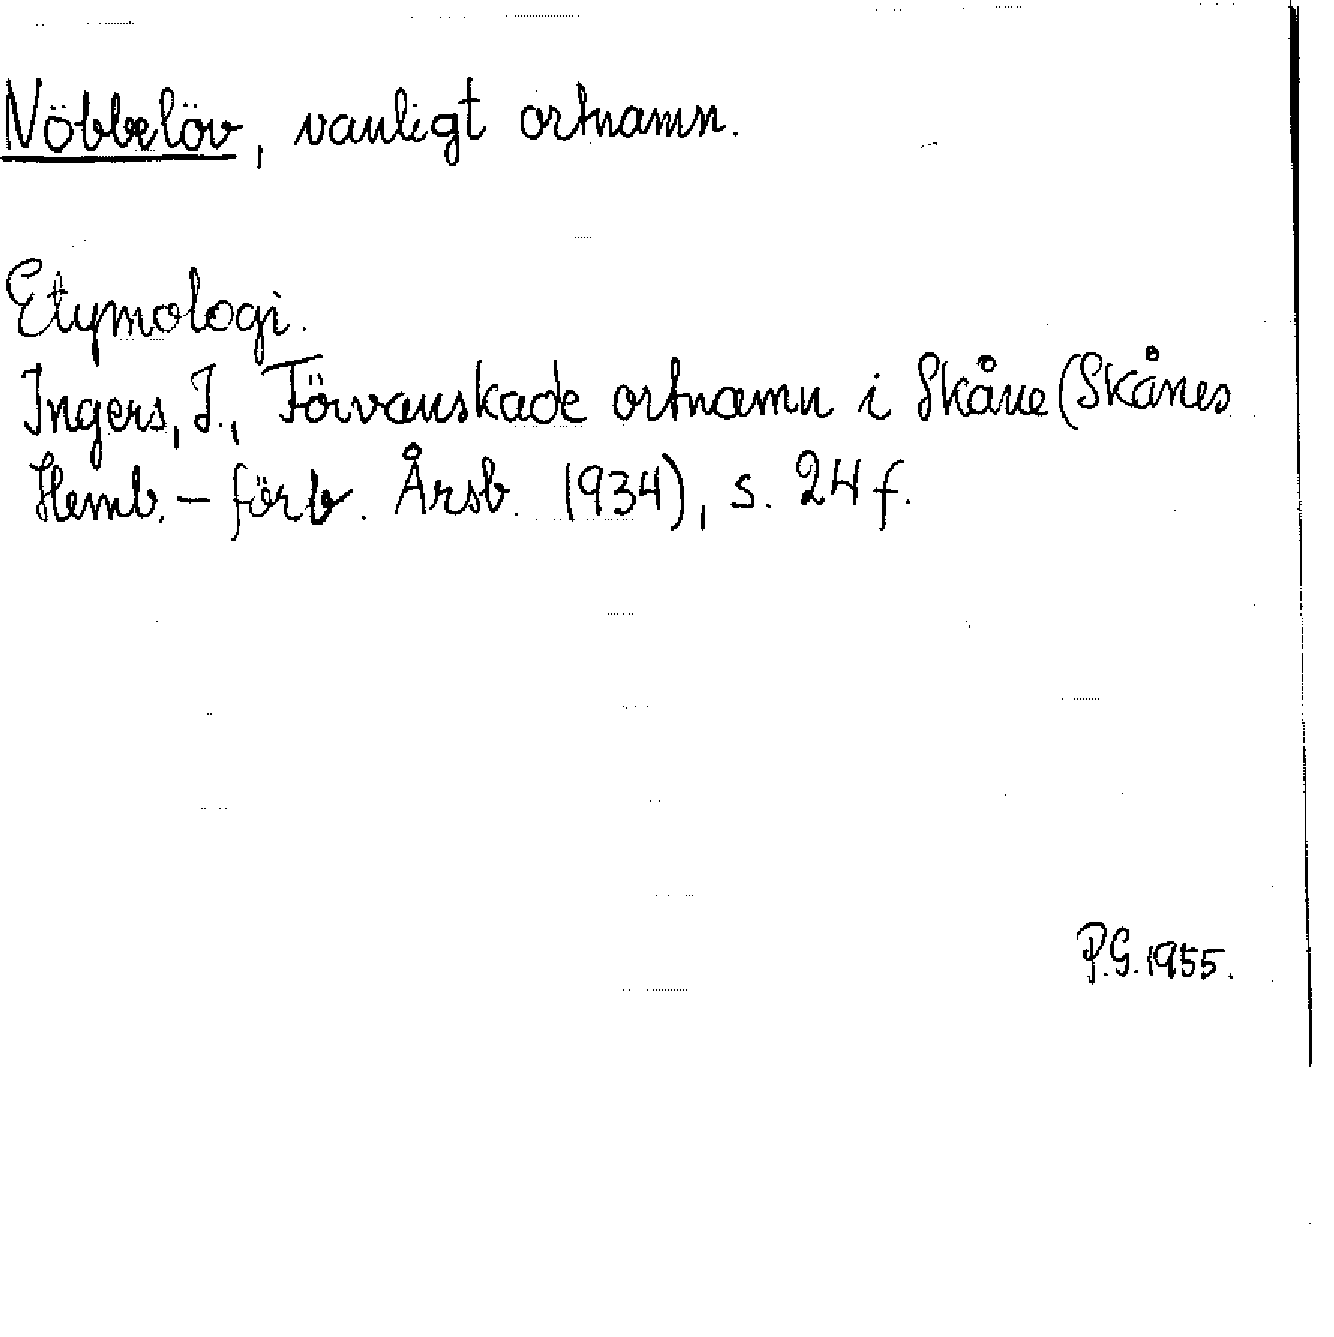 Nöbbelöv, vanligt ortnamn.
Etymologi.
Ingers, I., Förvanskade ortnamn i Skåne (Skånes
Hemb. - förb. Årsb. 1934), s. 24 f.
P.G. 1955.